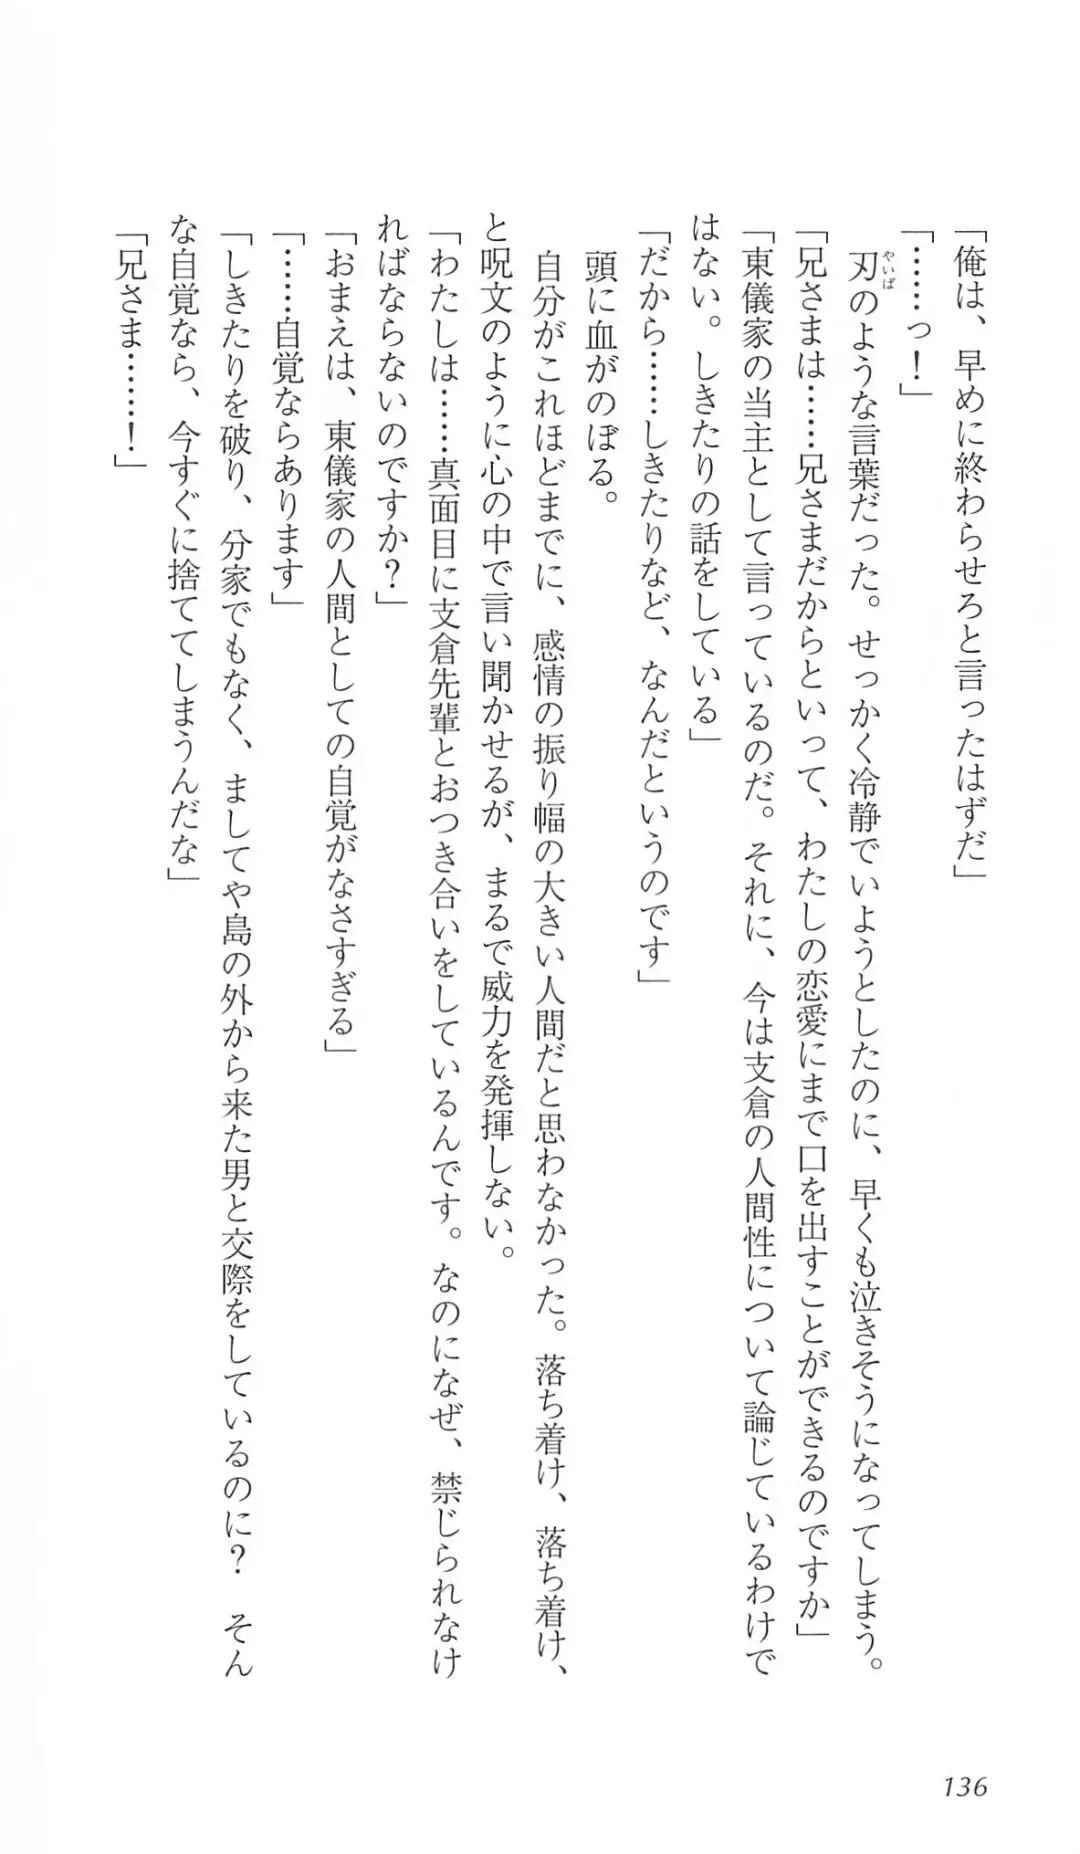 「俺は、早めに終わらせろと言ったはずだ」
「……っ！」
　刃のような言葉だった。せっかく冷静でいようとしたのに、早くも泣きそうになってしまう。
やいば
「兄さまは……兄さまだからといって、わたしの恋愛にまで口を出すことができるのですか」
「東儀家の当主として言っているのだ。それに、今は支倉の人間性について論じているわけで
はない。しきたりの話をしている」
「だから……しきたりなど、なんだというのです」
　頭に血がのぼる。
　自分がこれほどまでに、感情の振り幅の大きい人間だと思わなかった。落ち着け、落ち着け、
と呪文のように心の中で言い聞かせるが、まるで威力を発揮しない。
「わたしは……真面目に支倉先輩とおつき合いをしているんです。なのになぜ、禁じられなけ
ればならないのですか？」
「おまえは、東儀家の人間としての自覚がなさすぎる」
「……自覚ならあります」
「しきたりを破り、分家でもなく、ましてや島の外から来た男と交際をしているのに？　そん
な自覚なら、今すぐに捨ててしまうんだな」
「兄さま………！」
136